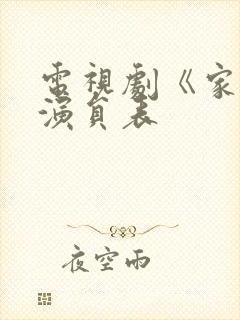 電視劇《家
演員表
夜空雨